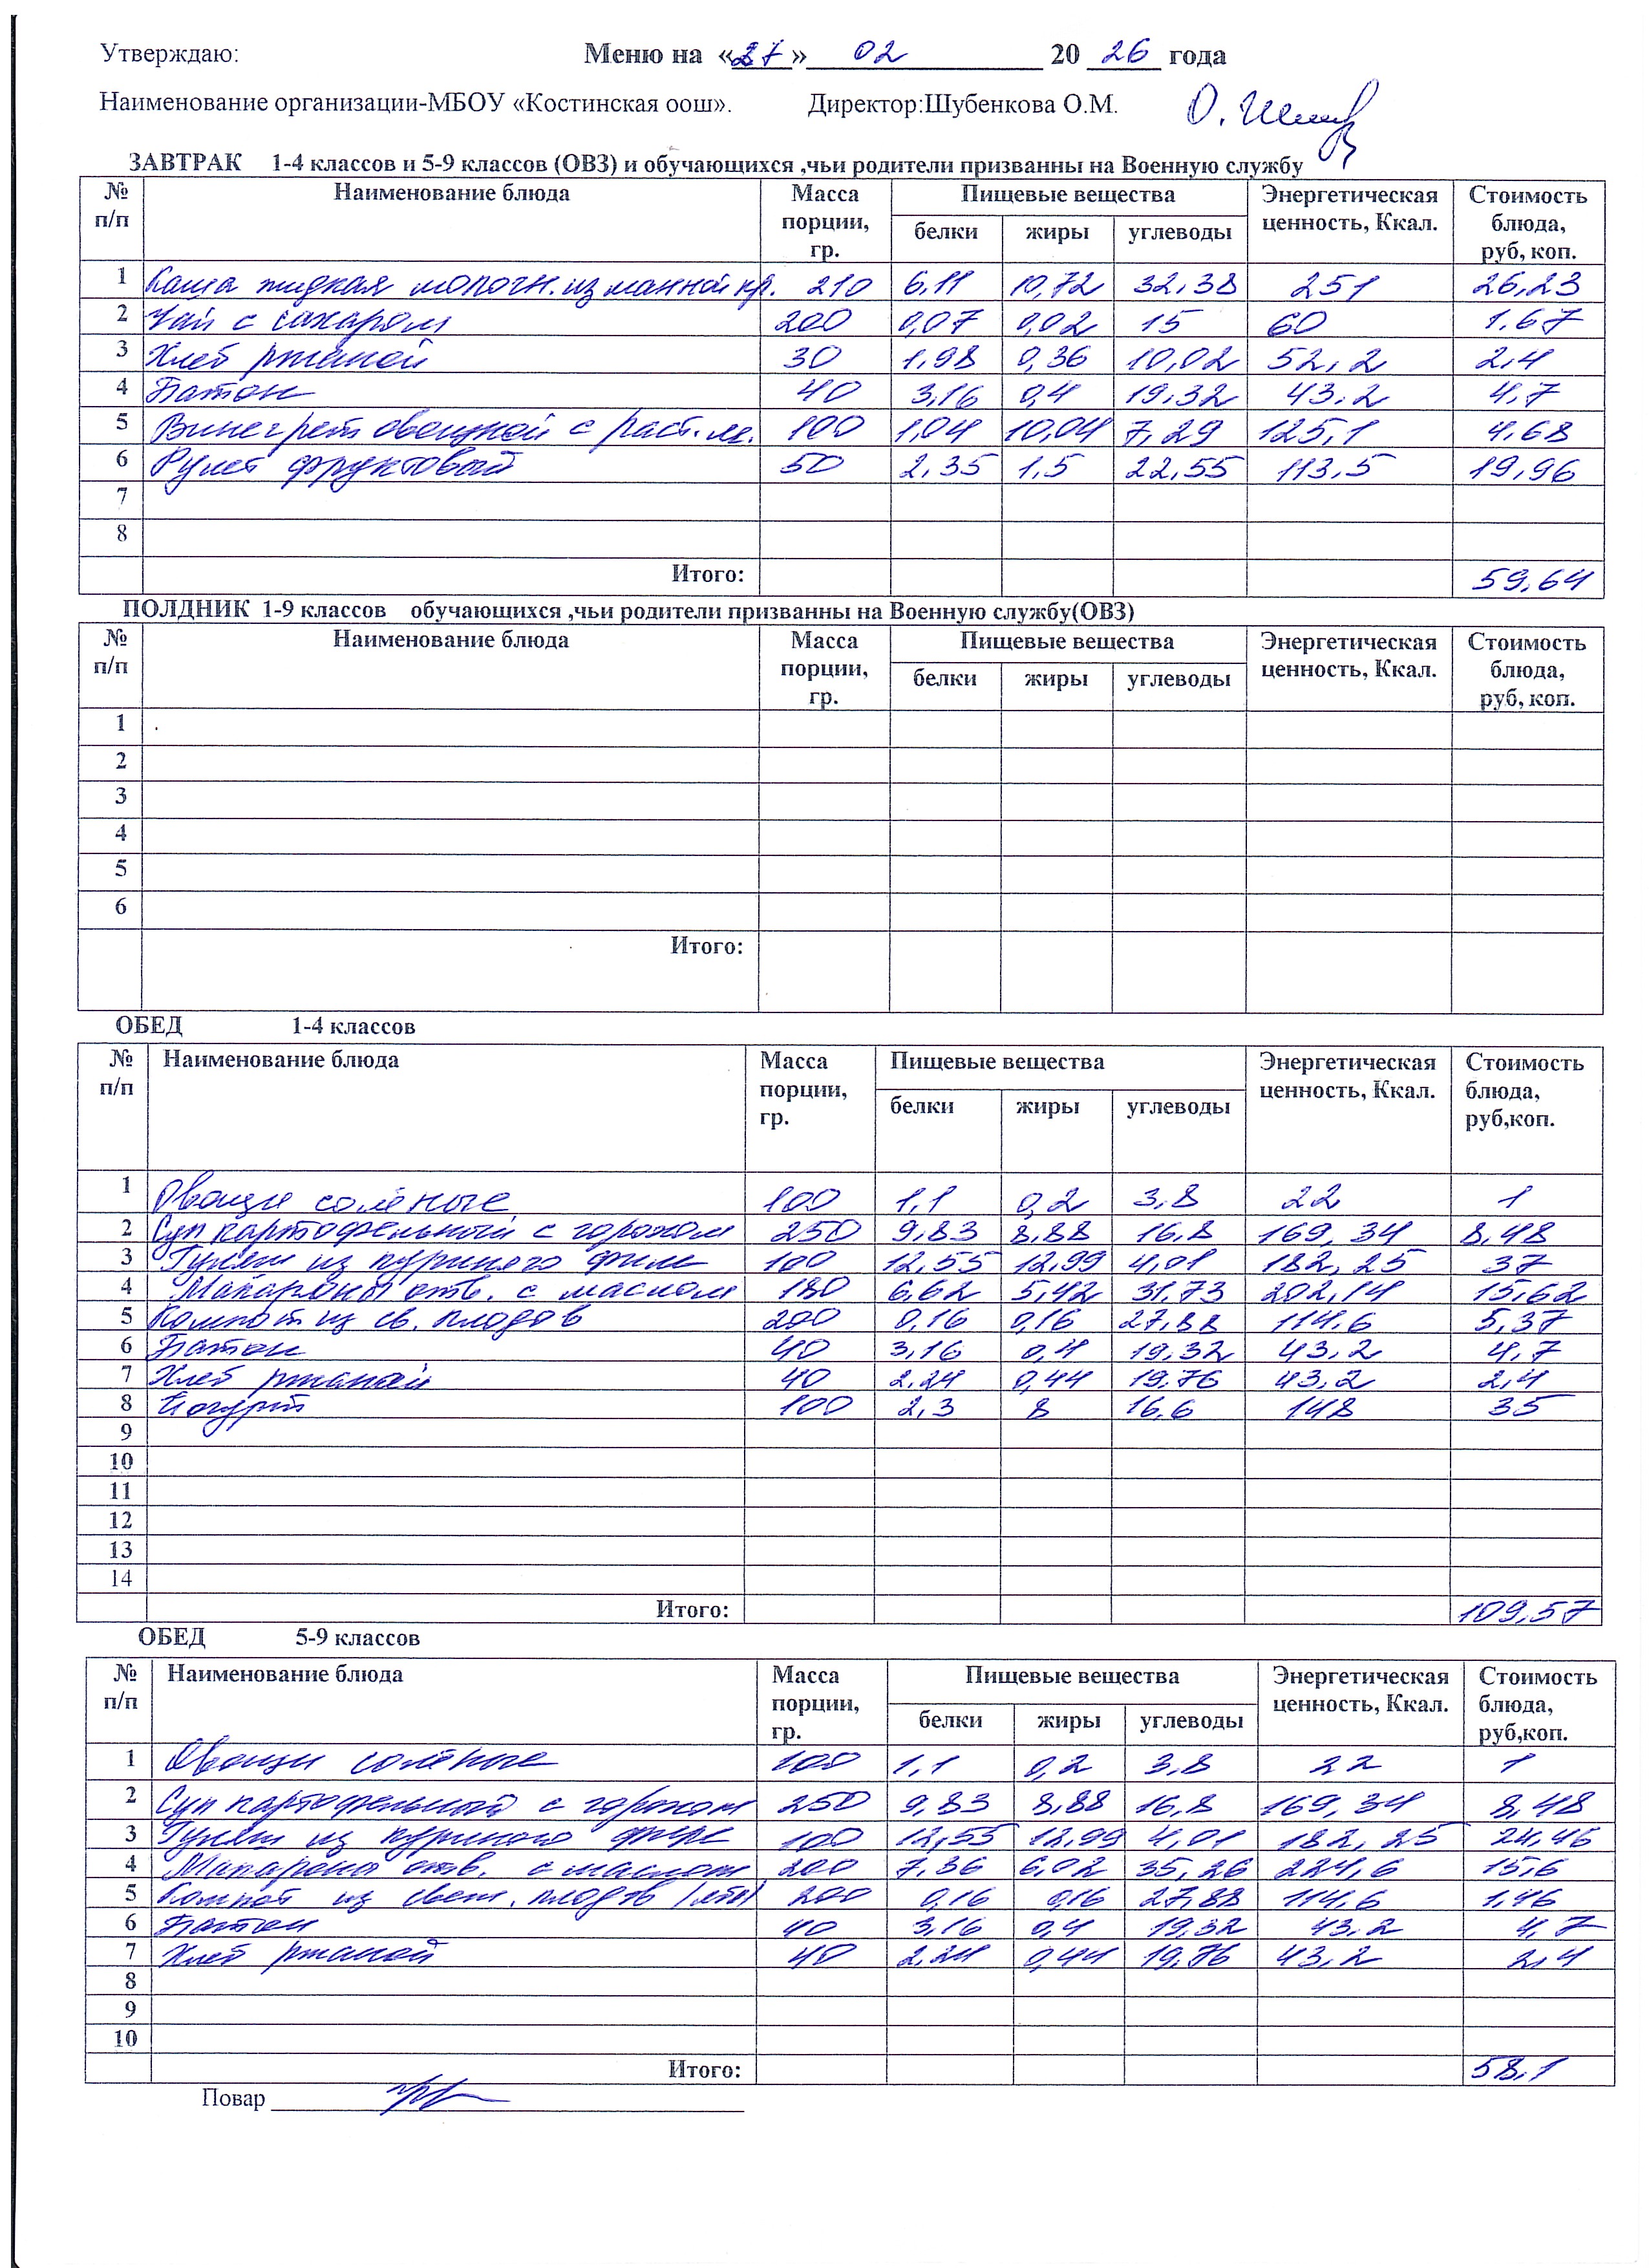 Утверждаю: Меню на «27» 02 20 26 года
Наименование организации-МБОУ «Костинская оош». Директор:Шубенкова О.М.
ЗАВТРАК 1-4 классов и 5-9 классов (ОВЗ) и обучающихся ,чьи родители призванны на Военную службу
№ п/п Наименование блюда Масса порции, гр. Пищевые вещества Энергетическая ценность, Ккал. Стоимость блюда, руб, коп.
белки жиры углеводы
1 Каша жидкая молочн. из манной кр. 210 6,11 10,72 32,38 251 26,23
2 Чай с сахаром 200 0,07 0,02 15 60 1,67
3 Хлеб ржаной 30 1,98 0,36 10,02 52,2 2,4
4 Батон 40 3,16 0,4 19,32 43,2 4,7
5 Винегрет овощной с раст. м. 100 1,04 10,04 7,29 125,1 4,68
6 Рулет фруктовый 50 2,35 1,5 22,55 113,5 19,96
7
8
Итого: 59,64
ПОЛДНИК 1-9 классов обучающихся ,чьи родители призванны на Военную службу(ОВЗ)
№ п/п Наименование блюда Масса порции, гр. Пищевые вещества Энергетическая ценность, Ккал. Стоимость блюда, руб, коп.
белки жиры углеводы
1
2
3
4
5
6
Итого:
ОБЕД 1-4 классов
№ п/п Наименование блюда Масса порции, гр. Пищевые вещества Энергетическая ценность, Ккал. Стоимость блюда, руб,коп.
белки жиры углеводы
1 Овощи солёные 100 1,1 0,2 3,8 22 1
2 Суп картофельный с горохом 250 9,83 8,88 16,8 169,34 8,48
3 Гуляш из куриного филе 100 12,55 12,99 4,01 182,25 37
4 Макароны отв. с маслом 180 6,62 5,42 31,73 202,14 15,62
5 Компот из св. плодов 200 0,16 0,16 27,88 114,6 5,37
6 Батон 40 3,16 0,4 19,32 43,2 4,7
7 Хлеб ржаной 40 2,24 0,44 19,76 43,2 2,4
8 Йогурт 100 2,3 8 16,6 148 35
9
10
11
12
13
14
Итого: 109,57
ОБЕД 5-9 классов
№ п/п Наименование блюда Масса порции, гр. Пищевые вещества Энергетическая ценность, Ккал. Стоимость блюда, руб,коп.
белки жиры углеводы
1 Овощи солёные 100 1,1 0,2 3,8 22 1
2 Суп картофельный с горохом 250 9,83 8,88 16,8 169,34 8,48
3 Гуляш из куриного филе 100 12,55 12,99 4,01 182,25 24,46
4 Макароны отв. с маслом 200 7,36 6,02 35,26 224,6 15,6
5 Компот из свеж. плодов 200 0,16 0,16 27,88 114,6 1,46
6 Батон 40 3,16 0,4 19,32 43,2 4,7
7 Хлеб ржаной 40 2,24 0,44 19,76 43,2 2,4
8
9
10
Итого: 58,1
Повар